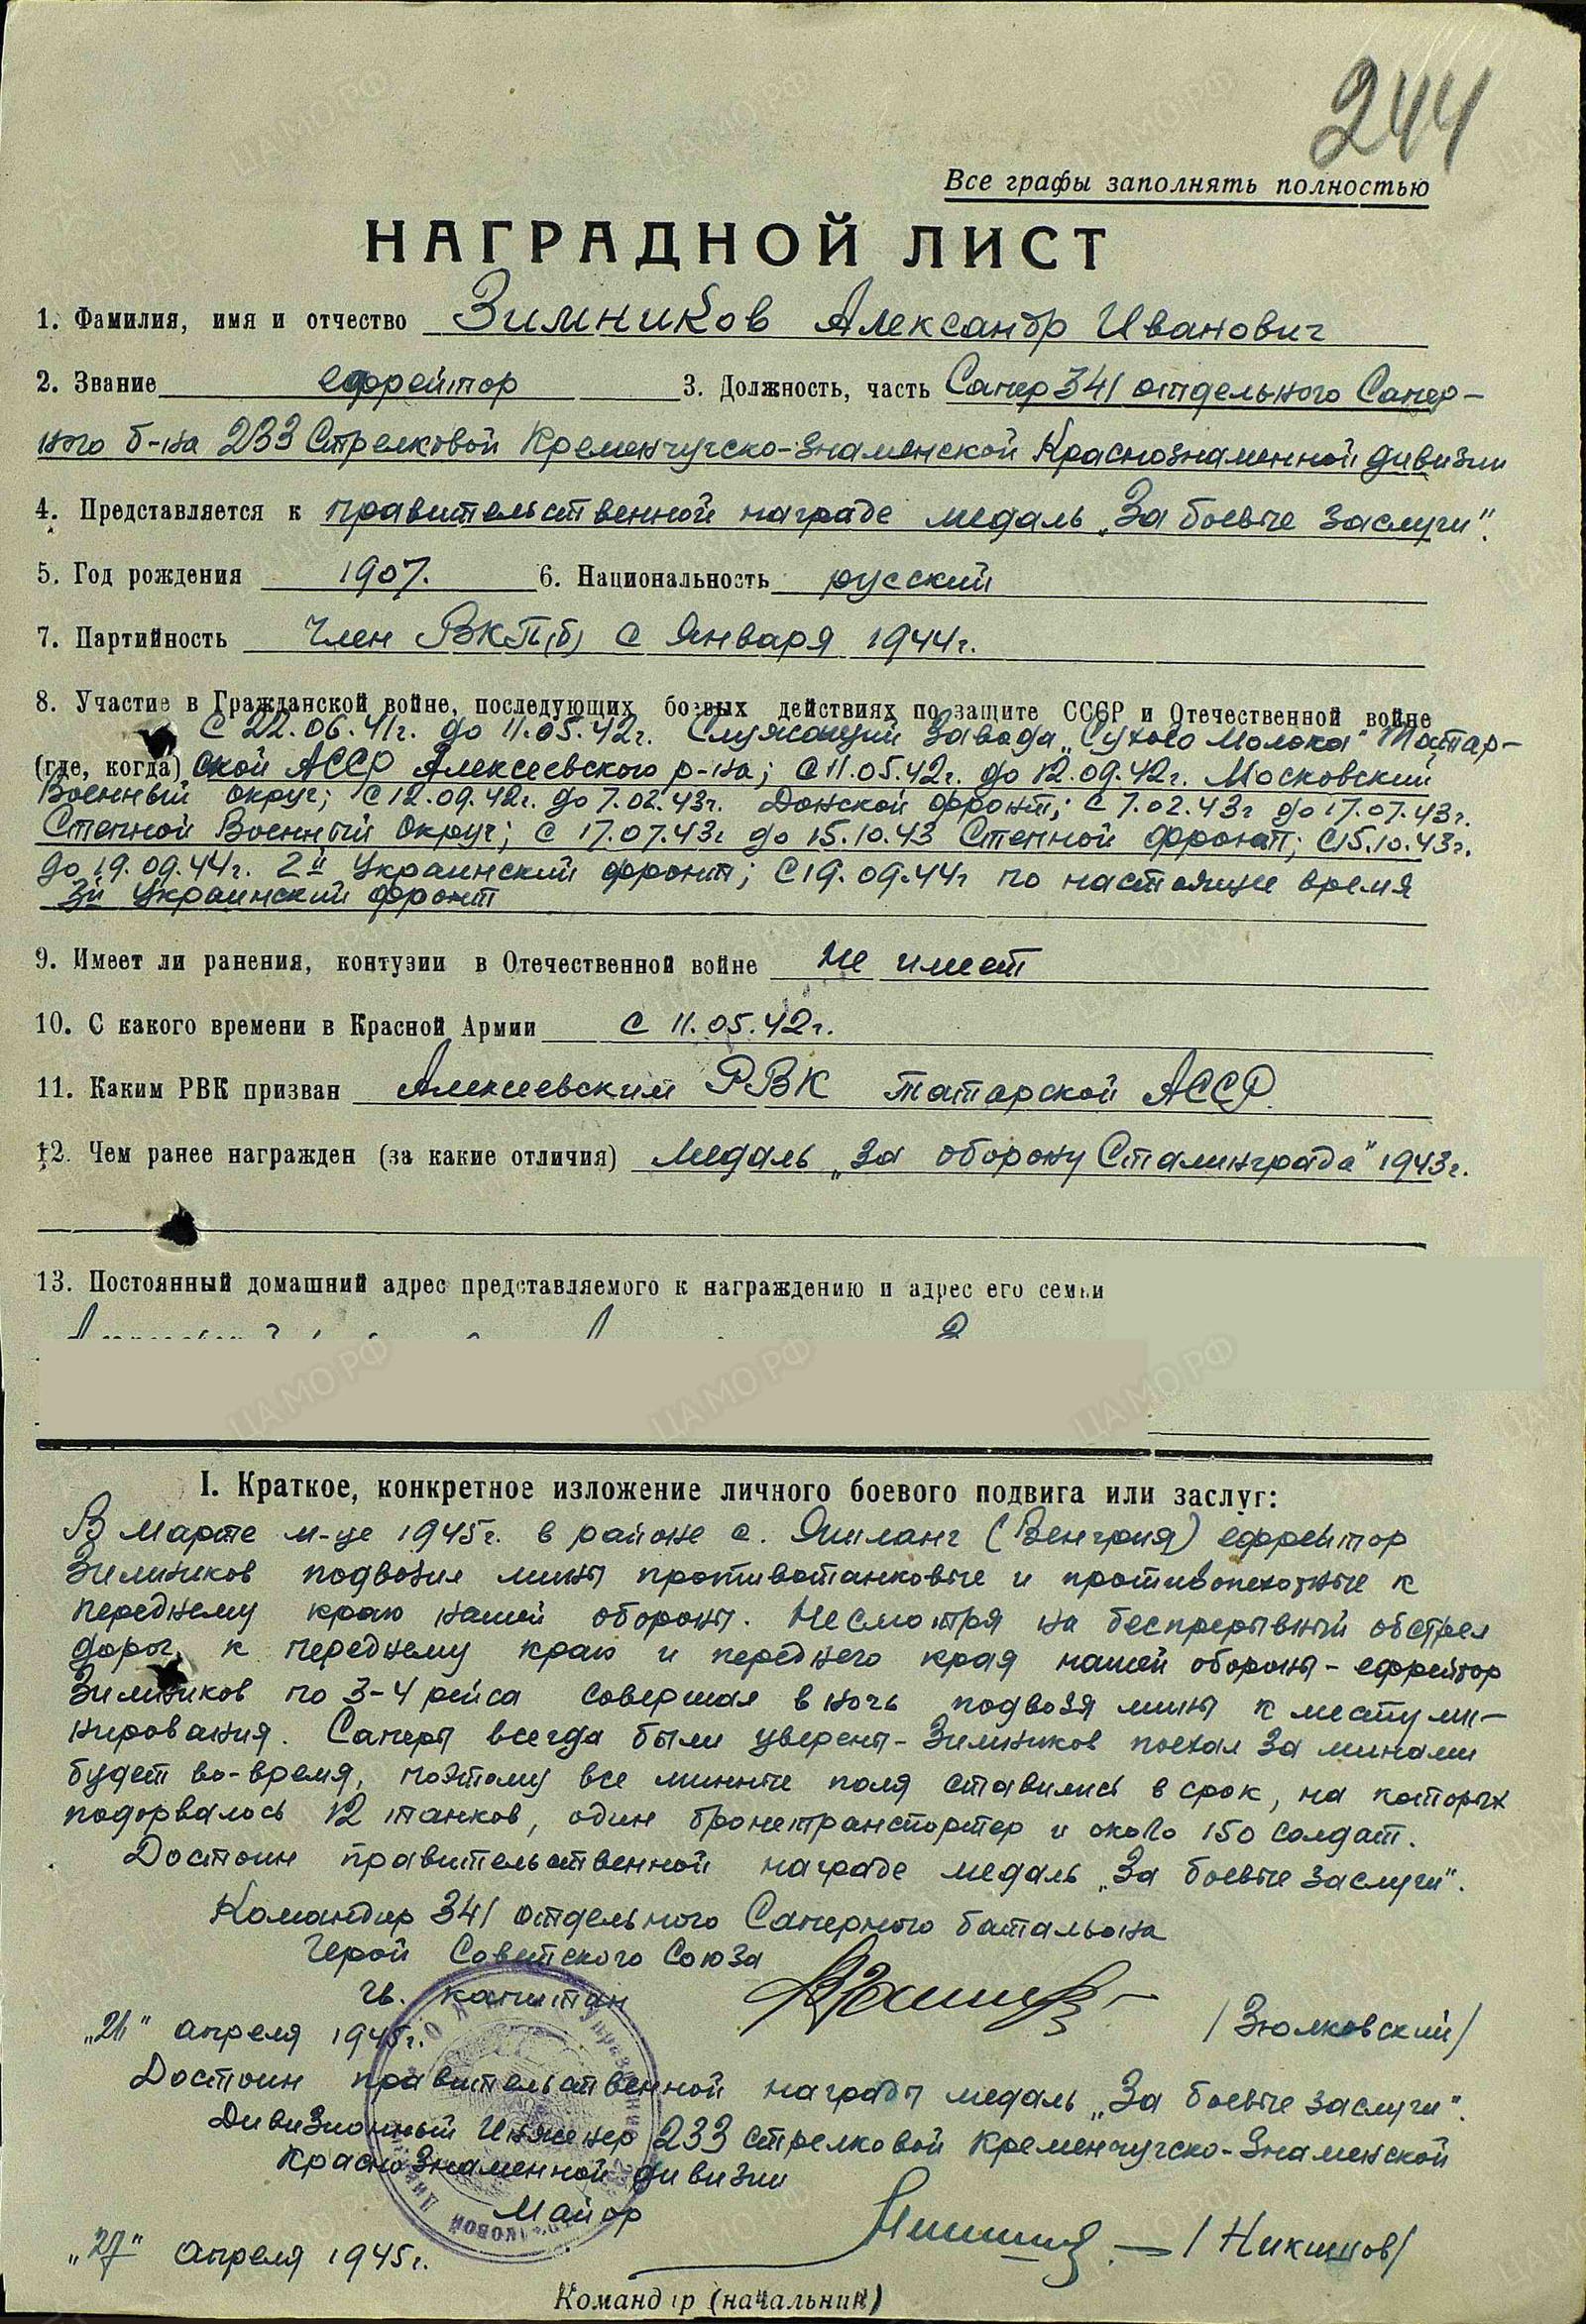 244
Все графы заполнять полностью
НАГРАДНОЙ ЛИСТ
1. Фамилия, имя и отчество Зимников Александр Иванович
2. Звание ефрейтор 3. Должность, часть Сапер 341 отдельного Сапер-
ного б-на 233 Стрелковой Кременчугско-Знаменской Краснознаменной дивизии
4. Представляется к правительственной награде медаль „За боевые заслуги".
5. Год рождения 1907. 6. Национальность русский
7. Партийность Член ВКП(б) с Января 1944г.
8. Участие в Гражданской войне, последующих боевых действиях по защите СССР и Отечественной войне
С 22.06.41г. до 11.05.42г. Служащий Завода „Сухого Молока" Татар-
(где, когда) ской АССР Алексеевского р-на; С 11.05.42г. до 12.09.42г. Московский
Военный округ; С 12.09.42г. до 7.02.43г. Донской фронт; с 7.02.43г до 17.07.43г.
Степной Военный Округ; с 17.07.43г до 15.10.43 Степной фронт; С 15.10.43г.
до 19.09.44г. 2й Украинский фронт; С 19.09.44г по настоящее время
3й Украинский фронт
9. Имеет ли ранения, контузии в Отечественной войне не имеет
10. С какого времени в Красной Армии с 11.05.42г.
11. Каким РВК призван Алексеевским РВК Татарской АССР.
12. Чем ранее награжден (за какие отличия) медаль „За оборону Сталинграда" 1943г.
13. Постоянный домашний адрес представляемого к награждению и адрес его семьи
I. Краткое, конкретное изложение личного боевого подвига или заслуг:
В Марте м-це 1945г. в районе с. Якиланг (Венгрия) ефрейтор
Зимников подвозил мины противотанковые и противопехотные к
переднему краю нашей обороны. Несмотря на беспрерывный обстрел
дорог, к переднему краю и переднего края нашей обороны - ефрейтор
Зимников по 3-4 рейса совершал в ночь подвозя мины к месту ми-
нирования. Саперы всегда были уверены - Зимников поехал за минами
будет во-время, поэтому все минные поля ставились в срок, на которых
подорвалось 12 танков, один бронетранспортер и около 150 солдат.
Достоин правительственной награде медаль „За боевые заслуги".
Командир 341 отдельного Саперного батальона
Герой Советского Союза
гв. капитан /Зюлковский/
„21" апреля 1945г.
Достоин правительственной награды медаль „За боевые заслуги".
Дивизионный Инженер 233 стрелковой Кременчугско-Знаменской
Краснознаменной дивизии
Майор /Никишов/
„27" апреля 1945г.
Командир (начальник)
ЦАМО.РФ